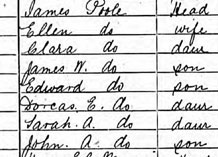 James Poole Head
Ellen do wife
Clara do daur
James W. do son
Edward do son
Dorcas E. do daur
Sarah. A. do daur
John. A. do son